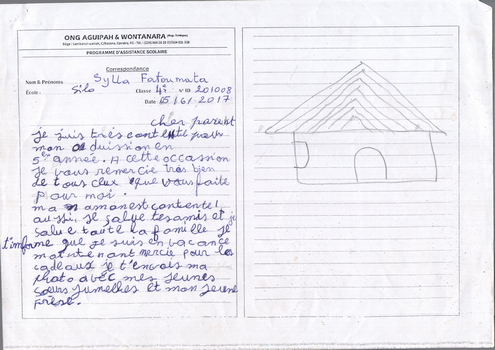 ONG AGUIPAH & WONTANARA
PROGRAMME D'ASSISTANCE SCOLAIRE
Correspondance
Nom & Prénoms Sylla Fatoumata
École : Silo Classe 4è N° ID 201008
Date : 15/6/2017
cher parent
je suis très contente pour
mon admission en
5è année. A cette occasion
je vous remercie très bien
de tous ceux que vous faite
pour moi.
ma maman est contente
aussi. je salue tes amis et je
salue toute la famille je
t'informe que je suis en vacance
maintenant mercie pour les
cadeaux je t'envois ma
photo avec mes jeunes
sœurs jumelles et mon jeune
frère.